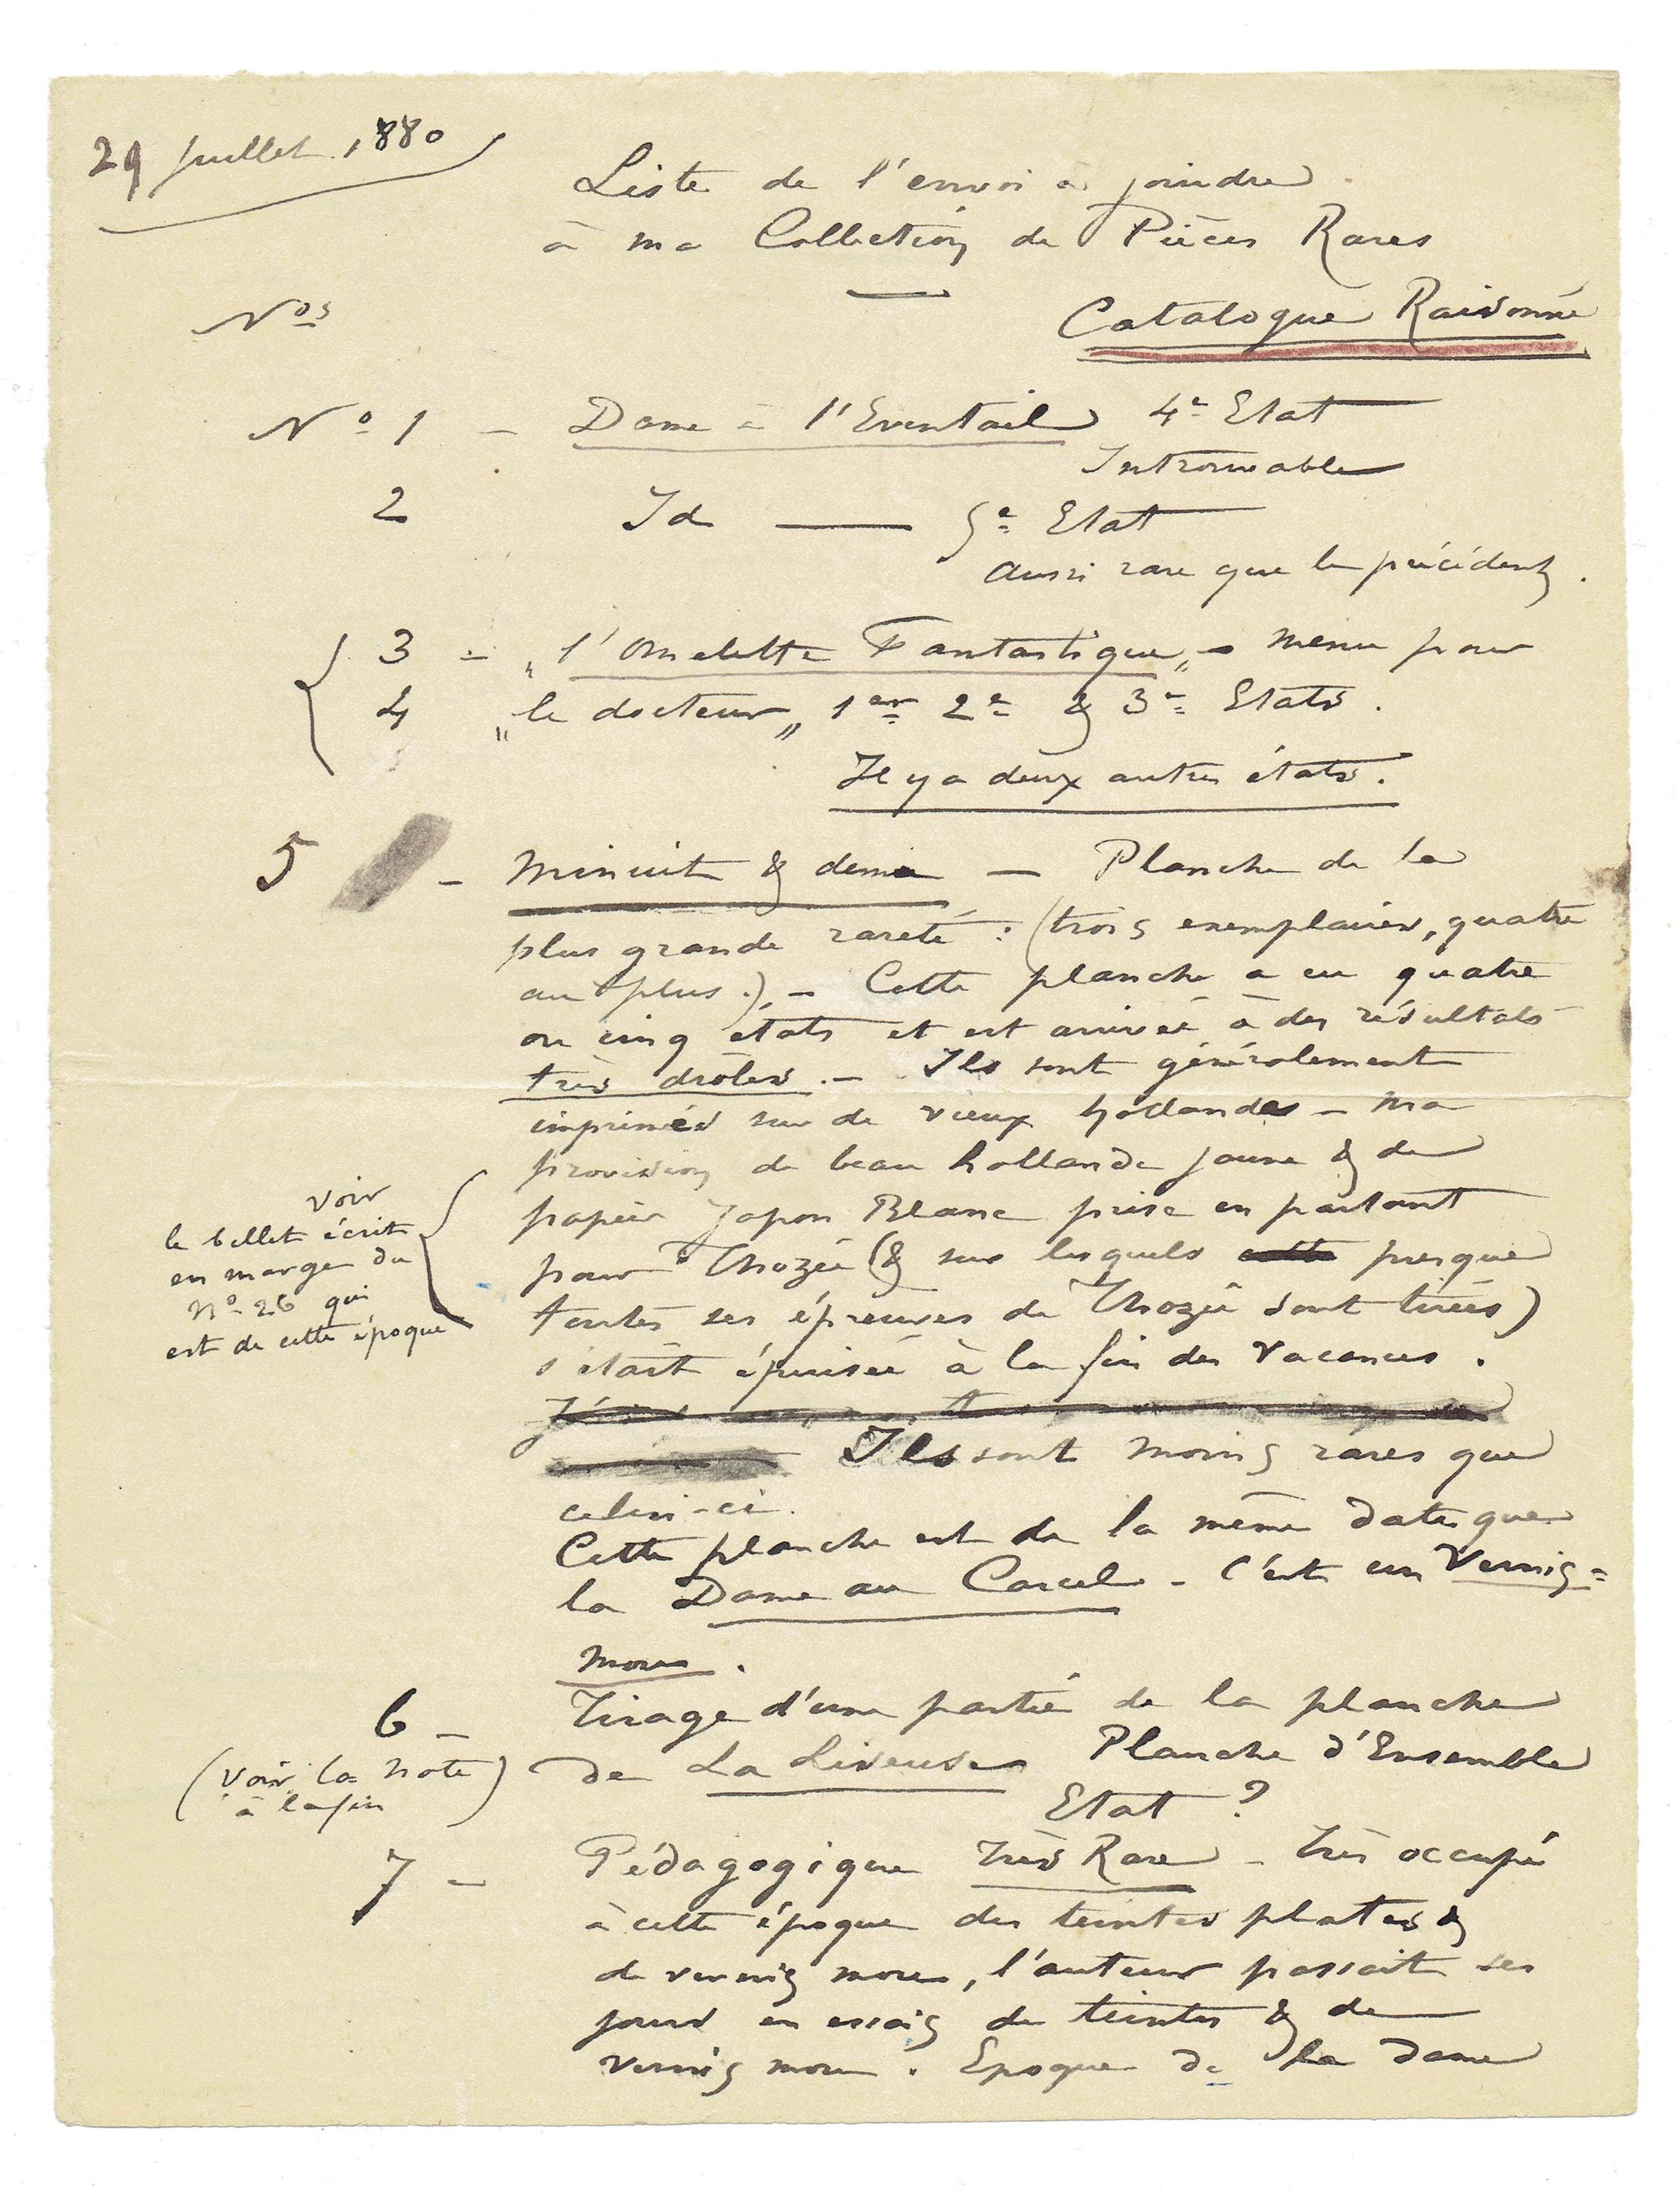 29 Juillet 1880
Liste de l'envoi à joindre
à ma Collection de Pièces Rares
Nos
Catalogue Raisonné
No 1 - Dame à l'Eventail 4e Etat
Introuvable
2 Id — 5e Etat
aussi rare que le précédent.
3 - "l'Omelette Fantastique" - menu pour
4 "le docteur" 1er 2e & 3e Etats.
Il y a deux autres états.
5 - Minuit & demie — Planche de la
plus grande rareté : (trois exemplaires, quatre
au plus.) - Cette planche a eu quatre
ou cinq états et est arrivée à des résultats
très drôles. - Ils sont généralement
imprimés sur de vieux hollandes - ma
provision de beau hollande jaune & de
papier Japon Blanc prise en partant
pour Thozée (& sur lesquels presque
toutes ses épreuves de Thozée sont tirées)
s'était épuisée à la fin des vacances.
voir
le billet écrit
en marge du
No 26 qui
est de cette époque
Ils sont moins rares que
celui-ci.
Cette planche est de la même date que
la Dame au Carcel - C'est un Vernis=
mou.
6 - Tirage d'une partie de la planche
(voir la note
à la fin)
de La Liseuse Planche d'Ensemble
Etat ?
7 - Pédagogique Très Rare - Très occupé
à cette époque des teintes plates &
de vernis mou, l'auteur passait ses
jours en essais de teintes & de
vernis mou. Epoque de la dame